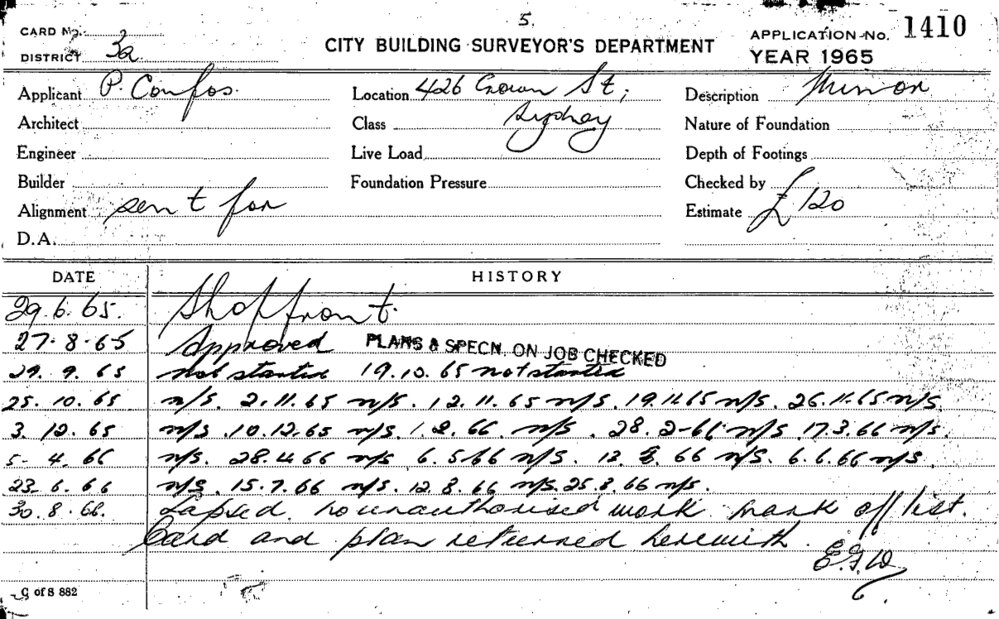 5.
CARD No.
CITY BUILDING SURVEYOR'S DEPARTMENT
APPLICATION No. 1410
DISTRICT 3a
YEAR 1965
Applicant P. Confos.
Location 426 Crown St,
Sydney
Description Minor
Architect
Class
Nature of Foundation
Engineer
Live Load
Depth of Footings
Builder
Foundation Pressure
Checked by
Alignment sent for
Estimate £120
D.A.
DATE HISTORY
29.6.65. Shopfront.
27.8.65 Approved PLANS & SPECN. ON JOB CHECKED
29.9.65 Not started 19.10.65 not started
25.10.65 n/S. 2.11.65 n/S. 12.11.65 n/S. 19.11.65 n/S. 26.11.65 n/S.
3.12.65 n/S. 10.12.65 n/S. 1.2.66. n/S. 28.2-66 n/S. 17.3.66 n/S.
5-4.66 n/S. 28.4.66 n/S 6.5.66 n/S. 66 n/S. 6.6.66 n/S.
23.6.66 n/S. 15.7.66 n/S. 12.8.66 n/S. 25.8.66 n/S.
30.8.66. Lapsed. no unauthorised work. mark off list.
Card and plan returned herewith.
C of S 882